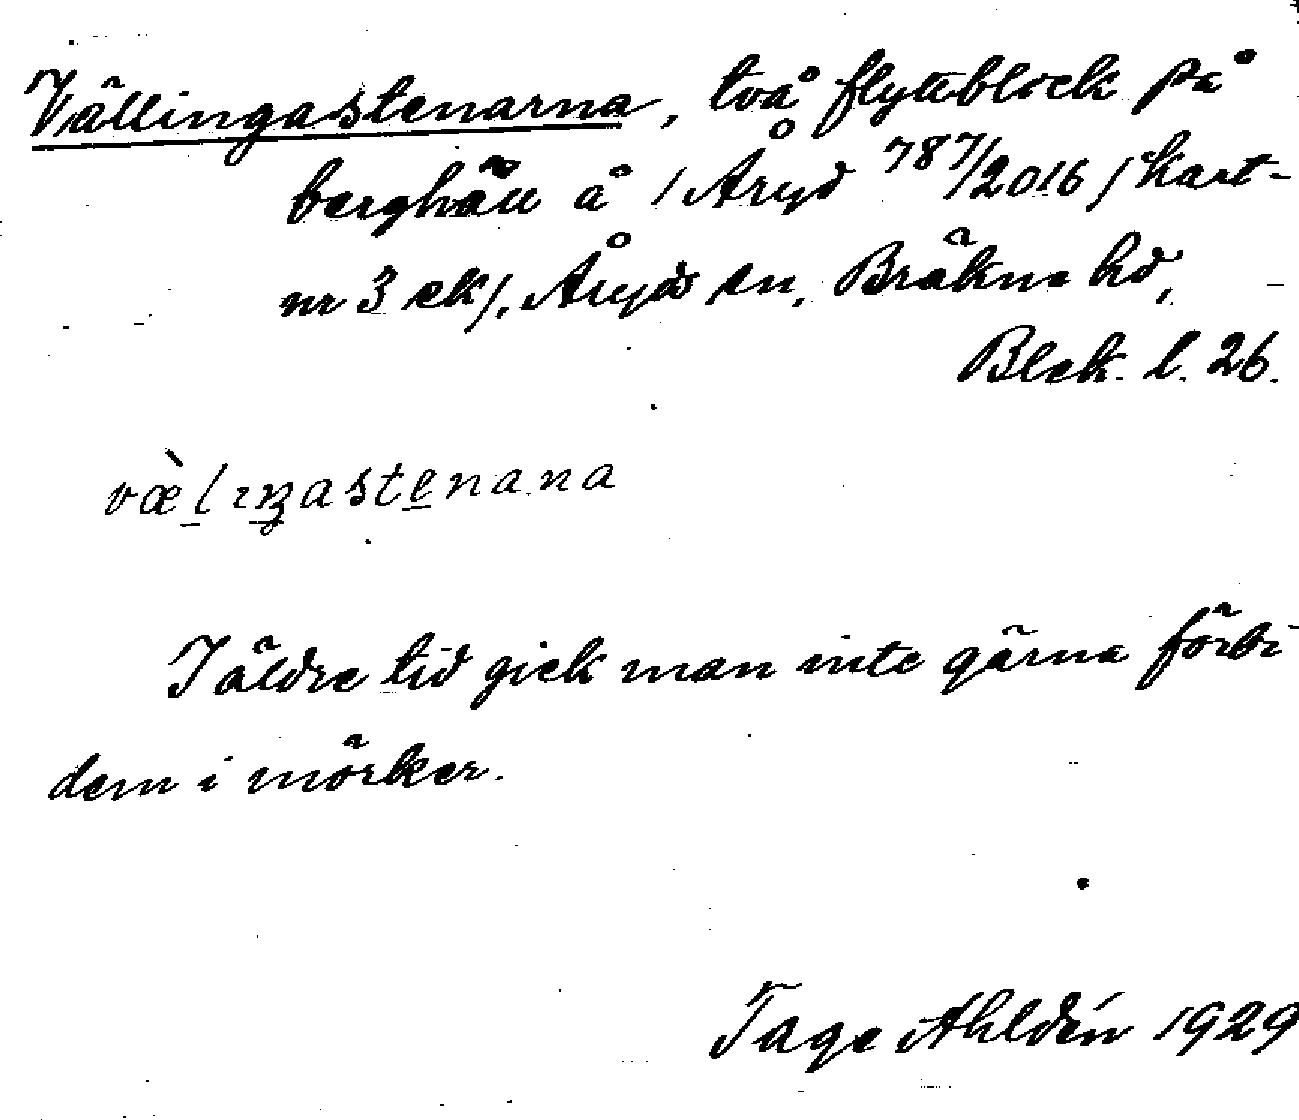 Vällingastenarna, två flyttblock på
berghäll å /Åryd 787/2016/kart-
nr 3 ek/, Åryds sn, Bräkne hd,
Blek. l. 26.
væ̀lıŋastenana
I äldre tid gick man inte gärna förbi
dem i mörker.
Tage Ahldén 1929